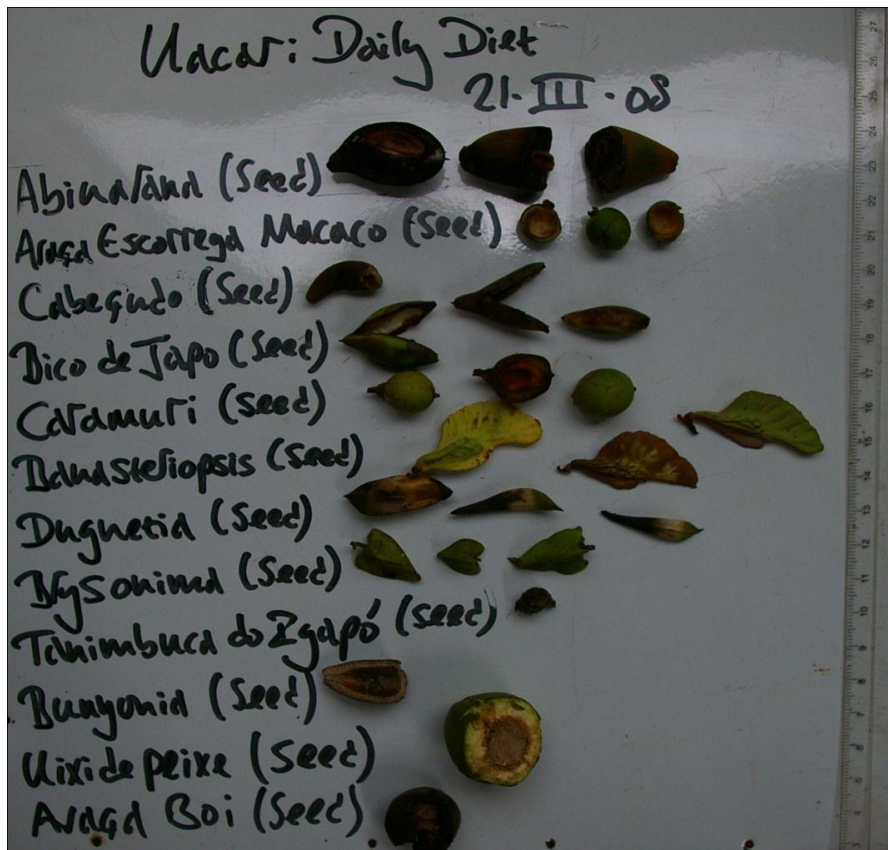 Uacari Daily Diet
21·III·08
Abiurana (Seed)
Araça Escorrega Macaco (Seed)
Cabeçudo (Seed)
Bico de Japo (Seed)
Caramuri (Seed)
Banasteriopsis (Seed)
Duguetia (Seed)
Brysonima (Seed)
Tanimbuca do Igapó (seed)
Bunyonia (Seed)
Uixi de peixe (Seed)
Araçá Boi (Seed)
27
26
25
24
23
22
21
20
19
18
17
16
15
14
13
12
11
10
9
8
7
6
5
4
3